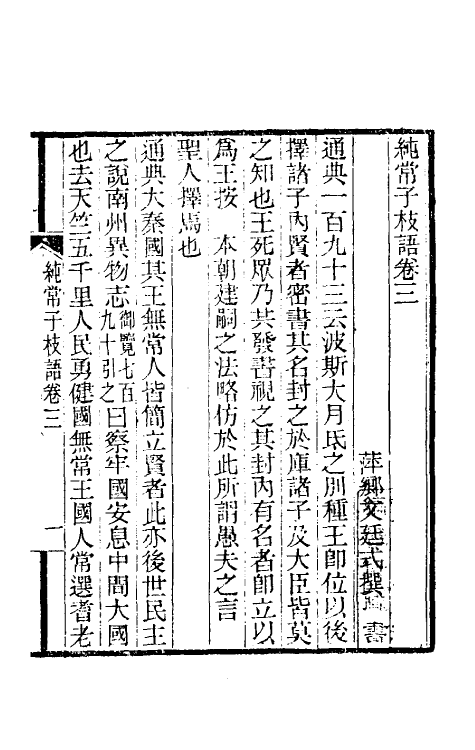 純常子枝語卷三
萍鄉文廷式撰
通典一百九十三云波斯大月氏之別種王卽位以後
擇諸子內賢者密書其名封之於庫諸子及大臣皆莫
之知也王死眾乃共發書視之其封內有名者卽立以
爲王按 本朝建嗣之法略仿於此所謂愚夫之言
聖人擇焉也
通典大秦國其王無常人皆簡立賢者此亦後世民主
之說南州異物志御覽七百九十引之曰察牢國安息中間大國
也去天竺五千里人民勇健國無常王國人常選耆老
純常子枝語卷三
一